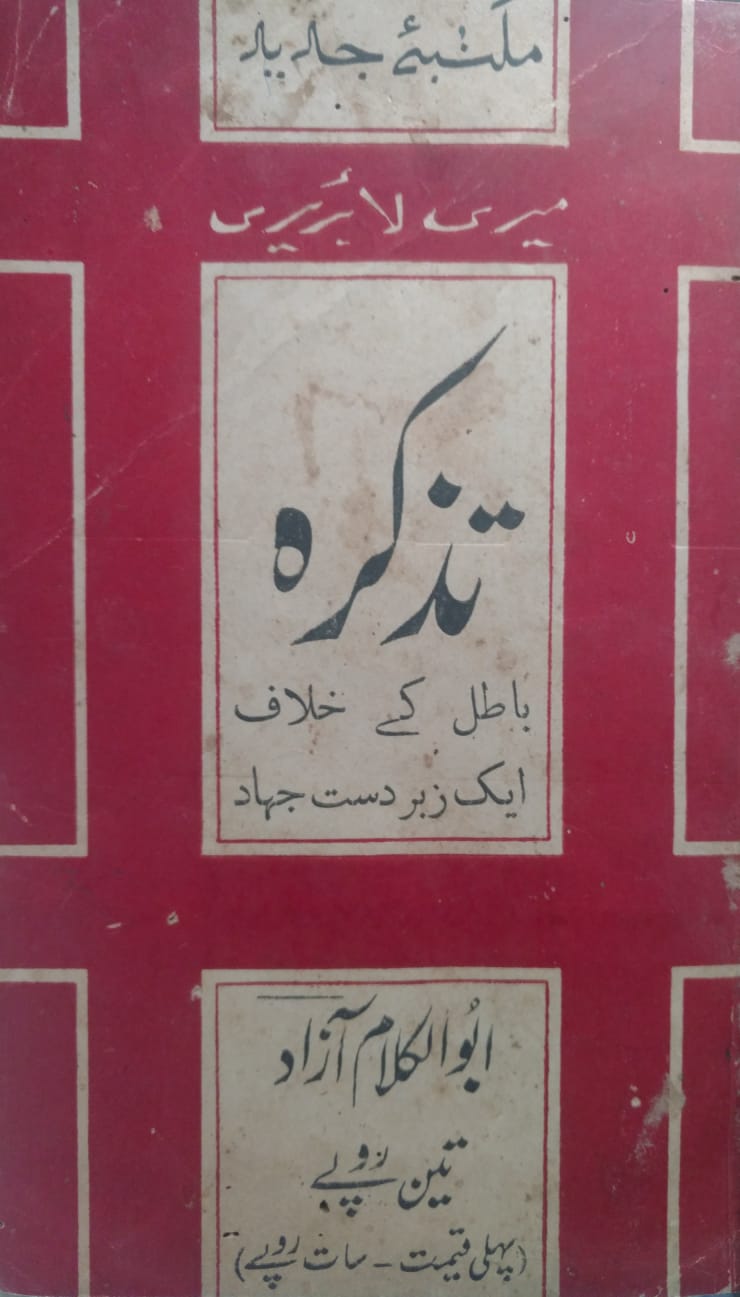 مکتبۂ جدید
میری لائبریری
تذکرہ
باطل کے خلاف
ایک زبردست جہاد
ابُوالکلام آزاد
تین روپے
(پہلی قیمت - سات روپے)